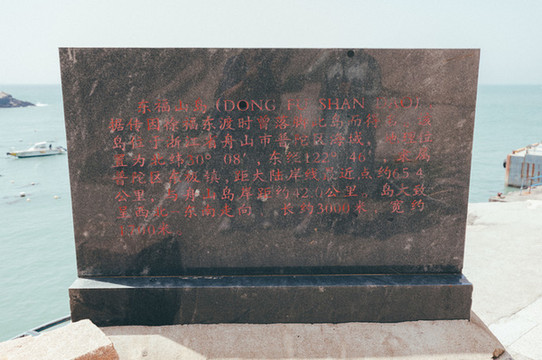 东福山岛 (DONG FU SHAN DAO),
据传因徐福东渡时曾落 此岛而得名,该
岛位于浙江省舟山市普陀区海域,地理位
置为北纬30° 08′,东经122° 46′,隶属
普陀区东极镇,距大陆岸线最近点约65.4
公里,与舟山岛岸距约42.0公里,岛大致
呈西北-东南走向, 长约3000米,宽约
米。